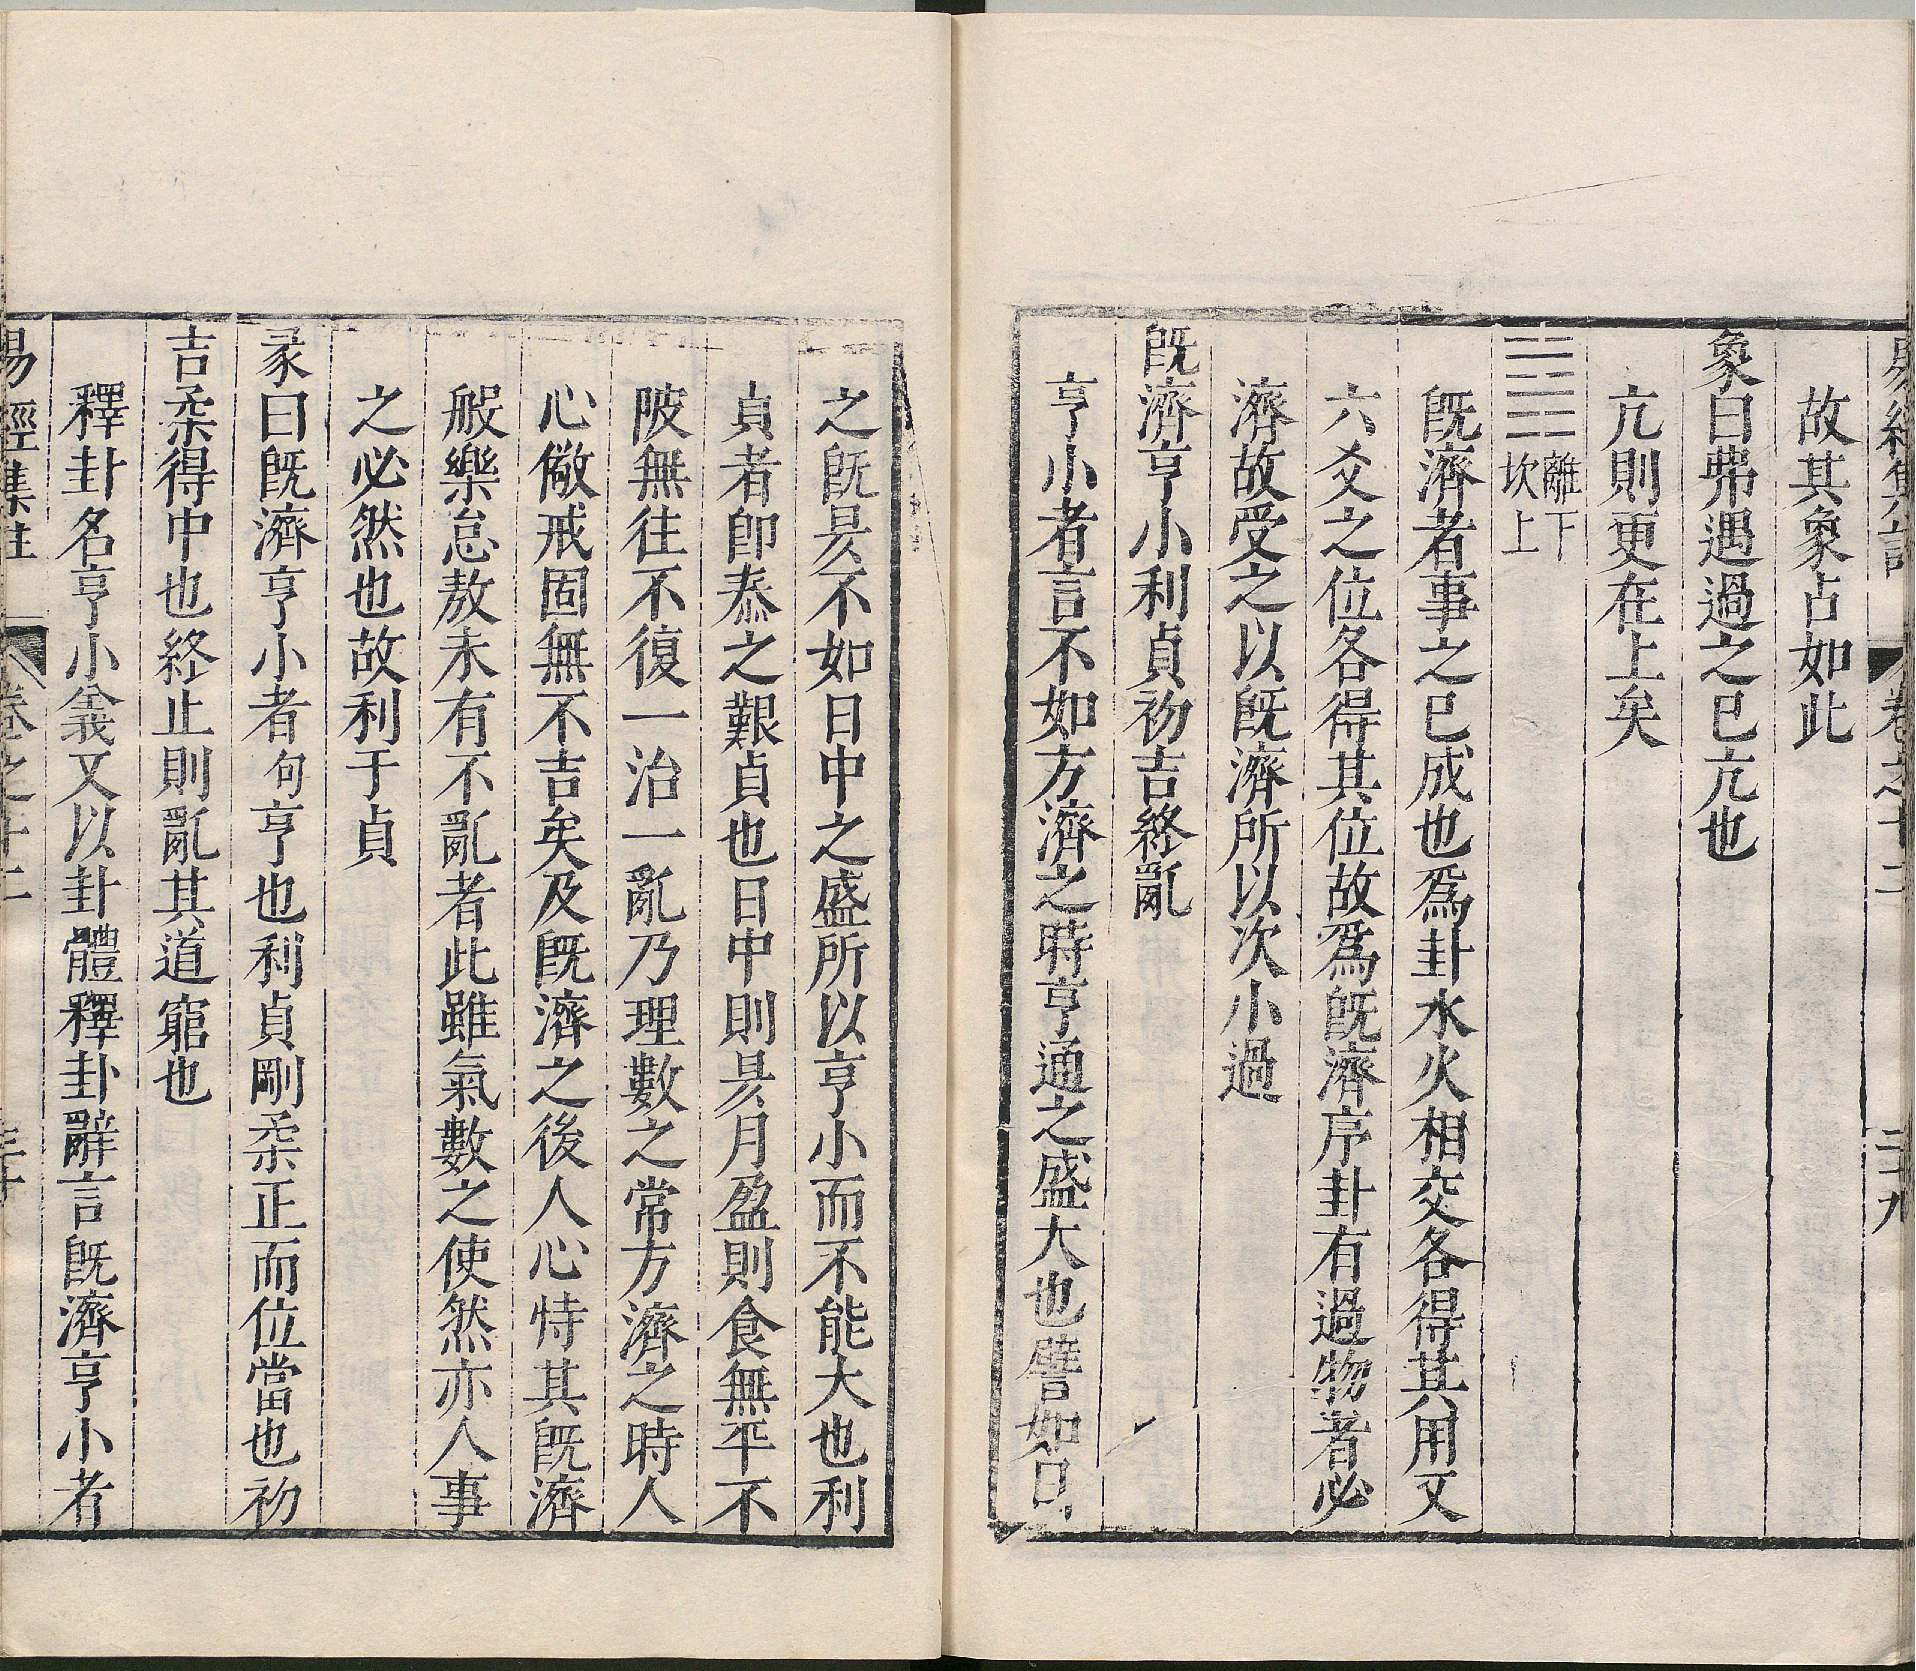 易經集註 卷之十二 二十九
故其象占如此
象曰弗遇過之已亢也
亢則更在上矣
離下
坎上
既濟者事之已成也爲卦水火相交各得其用又
六爻之位各得其位故爲既濟序卦有過物者必
濟故受之以既濟所以次小過
既濟亨小利貞初吉終亂
亨小者言不如方濟之時亨通之盛大也譬如日
之既昃不如日中之盛所以亨小而不能大也利
貞者卽泰之艱貞也日中則昃月盈則食無平不
陂無往不復一治一亂乃理數之常方濟之時人
心儆戒固無不吉矣及既濟之後人心恃其既濟
般樂怠敖未有不亂者此雖氣數之使然亦人事
之必然也故利于貞
彖曰既濟亨小者句亨也利貞剛柔正而位當也初
吉柔得中也終止則亂其道窮也
釋卦名亨小義又以卦體釋卦辭言既濟亨小者
易經集註 卷之十二 三十